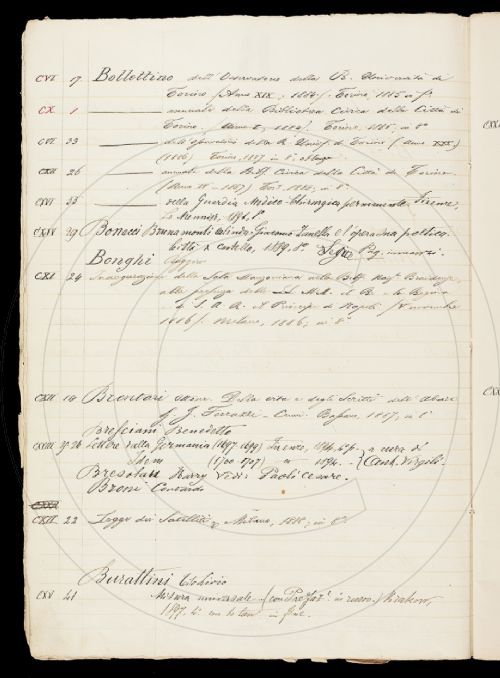 CVI 17 Bollettino dell'Osservatorio della R. Università di
Torino (Anno XIX, 1884). Torino, 1885 in f.
CX. 1 ——— annuale della Biblioteca Civica della Città di
Torino (Anno 1884). Torino, 1885, in 8°
CVI 33 ——— dell'Osservatorio della R. Univ. di Torino (Anno XXI)
(1886) Torino, 1887 in
CXII 26 ——— annuale della Bibl. Civica della Città di Torino.
(Anno IV - 1887) Tor. 1888, in 8°
XVI 33 ——— della Guardia Medico-Chirurgica permanente. Firenze,
Le Monnier, 1871, 8°
CXIV 29 Bonacci Brunamonti Alinda, Giacomo Zanella e l'opera sua poetica.
Città di Castello, 1889, 8°. Segue Pag. innanzi.
Bonghi Ruggero
CXI 24 Inaugurazione della Sala Manzoniana alla Bibl. Naz. Braidense,
alla presenza delle LL. MM. il Re e la Regina
e S. A. R. il Principe di Napoli (novembre
1886). Milano, 1886, in 8°
CXII 18 Brentari Ottone. Della vita e degli Scritti dell'Abate
J. Ferrazzi - Cenni. Bassano, 1887, in 8°
Bresciani Benedetto
CXIII 25 26 Lettere sulla Germania (1697-1699) Firenze, 1894, a cura di
Idem (1700-1707) 1894. Cent. Virgili.
Bresolau Harry Vedi: Paoli Cesare.
Broni Corrado
CXII. 22 Legge dei Satelliti, Milano, 1888, in 8°
Burattini Tito Livio
CXV 41 Misura universale (con Prefaz. in russo) Krakow,
1897, 4° con tav. in fine.